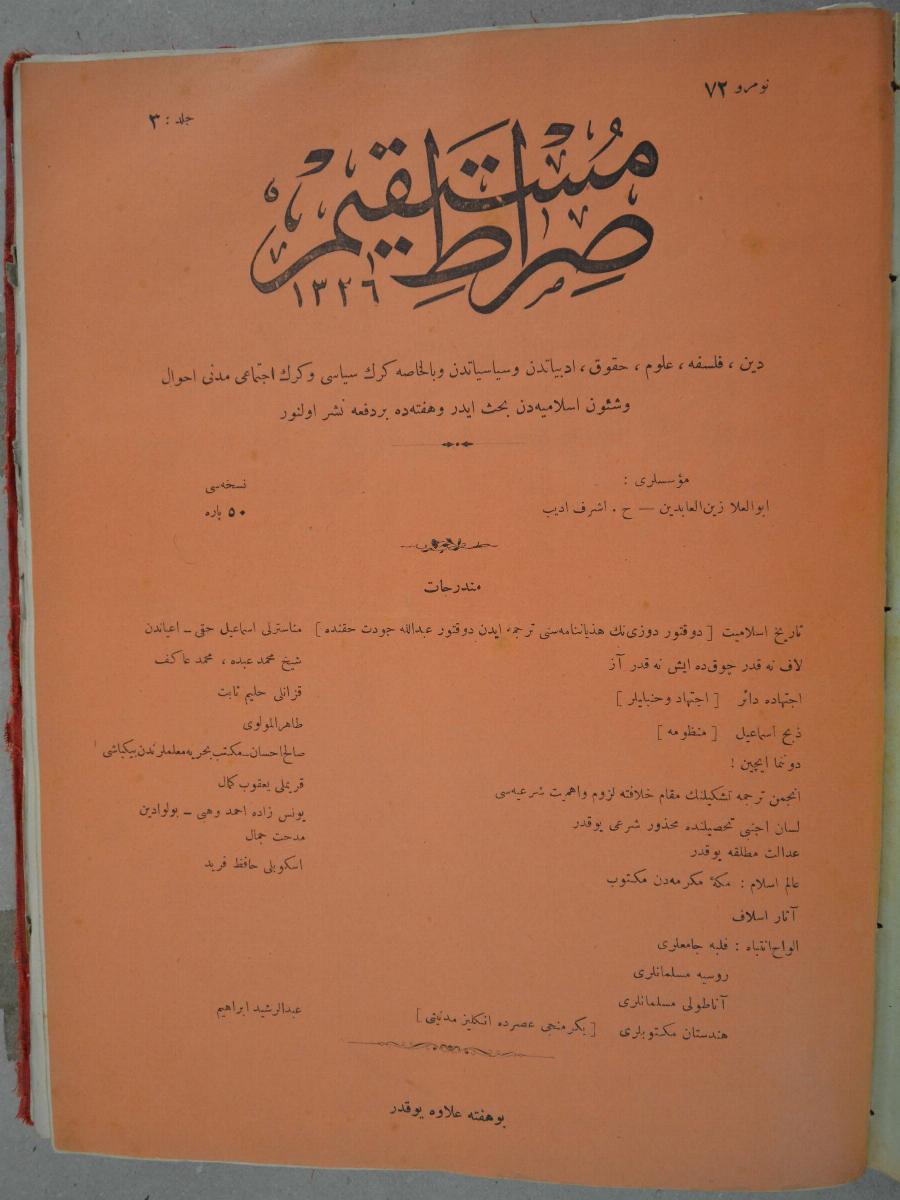 نومرو ۷۲
جلد : ۳
صِرَاطِ مُسْتَقِيم
١٣٢٦
دين ، فلسفه ، علوم ، حقوق ، ادبياتدن وسياسياتدن وبالخاصه كرك سياسى وكرك اجتماعى مدنى احوال
وشئون اسلاميه‌دن بحث ايدر وهفته‌ده بردفعه نشر اولنور
مؤسسلرى :
ابوالعلا زين‌العابدين — ح . اشرف اديب
نسخه‌سى
۵۰ پاره
مندرجات
تاريخ اسلاميت [ دوقتور دوزى‌نك هذياننامه‌سنى ترجمه ايدن دوقتور عبدالله جودت حقنده ] مناسترلى اسماعيل حقى ـ اعياندن
لاف نه قدر چوق‌ده ايش نه قدر آز شيخ محمد عبده ، محمد عاكف
اجتهاده دائر [ اجتهاد وحنبليلر ] قزانلى حليم ثابت
ذبح اسماعيل [ منظومه ] طاهرالمولوى
دوننما ايچين ! صالح احسان ـ مكتب بحريه معلملرندن بيكباشى
انجمن ترجمه تشكيلنك مقام خلافته لزوم واهميت شرعيه‌سى قريملى يعقوب كمال
لسان اجنبى تحصيلنده محذور شرعى يوقدر يونس زاده احمد وهبى ـ بولوادين
عدالت مطلقه يوقدر مدحت جمال
عالم اسلام : مكهٔ مكرمه‌دن مكتوب اسكوبلى حافظ فريد
آثار اسلاف
الواح انتباه : فلبه جامعلرى
روسيه مسلمانلرى
آناطولى مسلمانلرى
هندستان مكتوبلرى [ يكرمنجى عصرده انكليز مدنيتى ] عبدالرشيد ابراهيم
بو هفته علاوه يوقدر